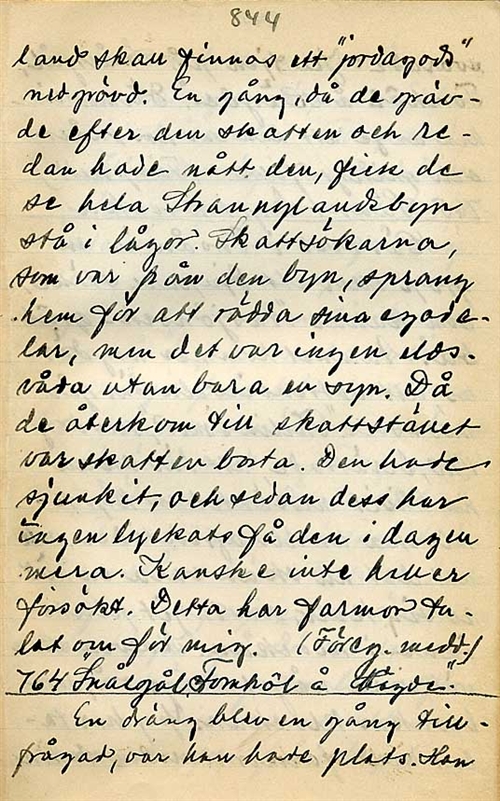 844
land skall finnas ett "jordagods"
nedgrävd. En gång, då de gräv-
de efter den skatten och re-
dan hade nått den, fick de
se hela Strannylandsbyn
stå i lågor. Skattsökarna,
som var från den byn, sprang
hem för att rädda sina egode-
lar, men det var ingen elds-
våda utan bara en syn. Då
de återkom till skattstället
var skatten borta. Den hade
sjunkit, och sedan dess har
ingen lyckats få den i dagen
mera. Kanske inte heller
försökt. Detta har farmor ta-
lat om för mig. (Föreg. medd.)
764 "Snålgål, Tomhôl å
En dräng blev en gång till-
frågad, var han hade plats. Han